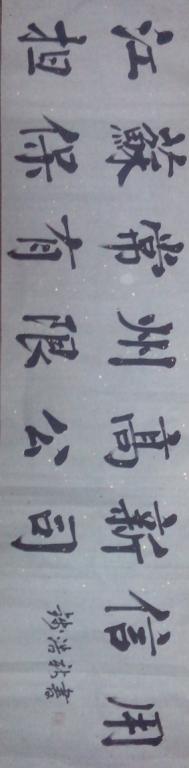 江蘇常州高新信用
担保有限公司
浩新書